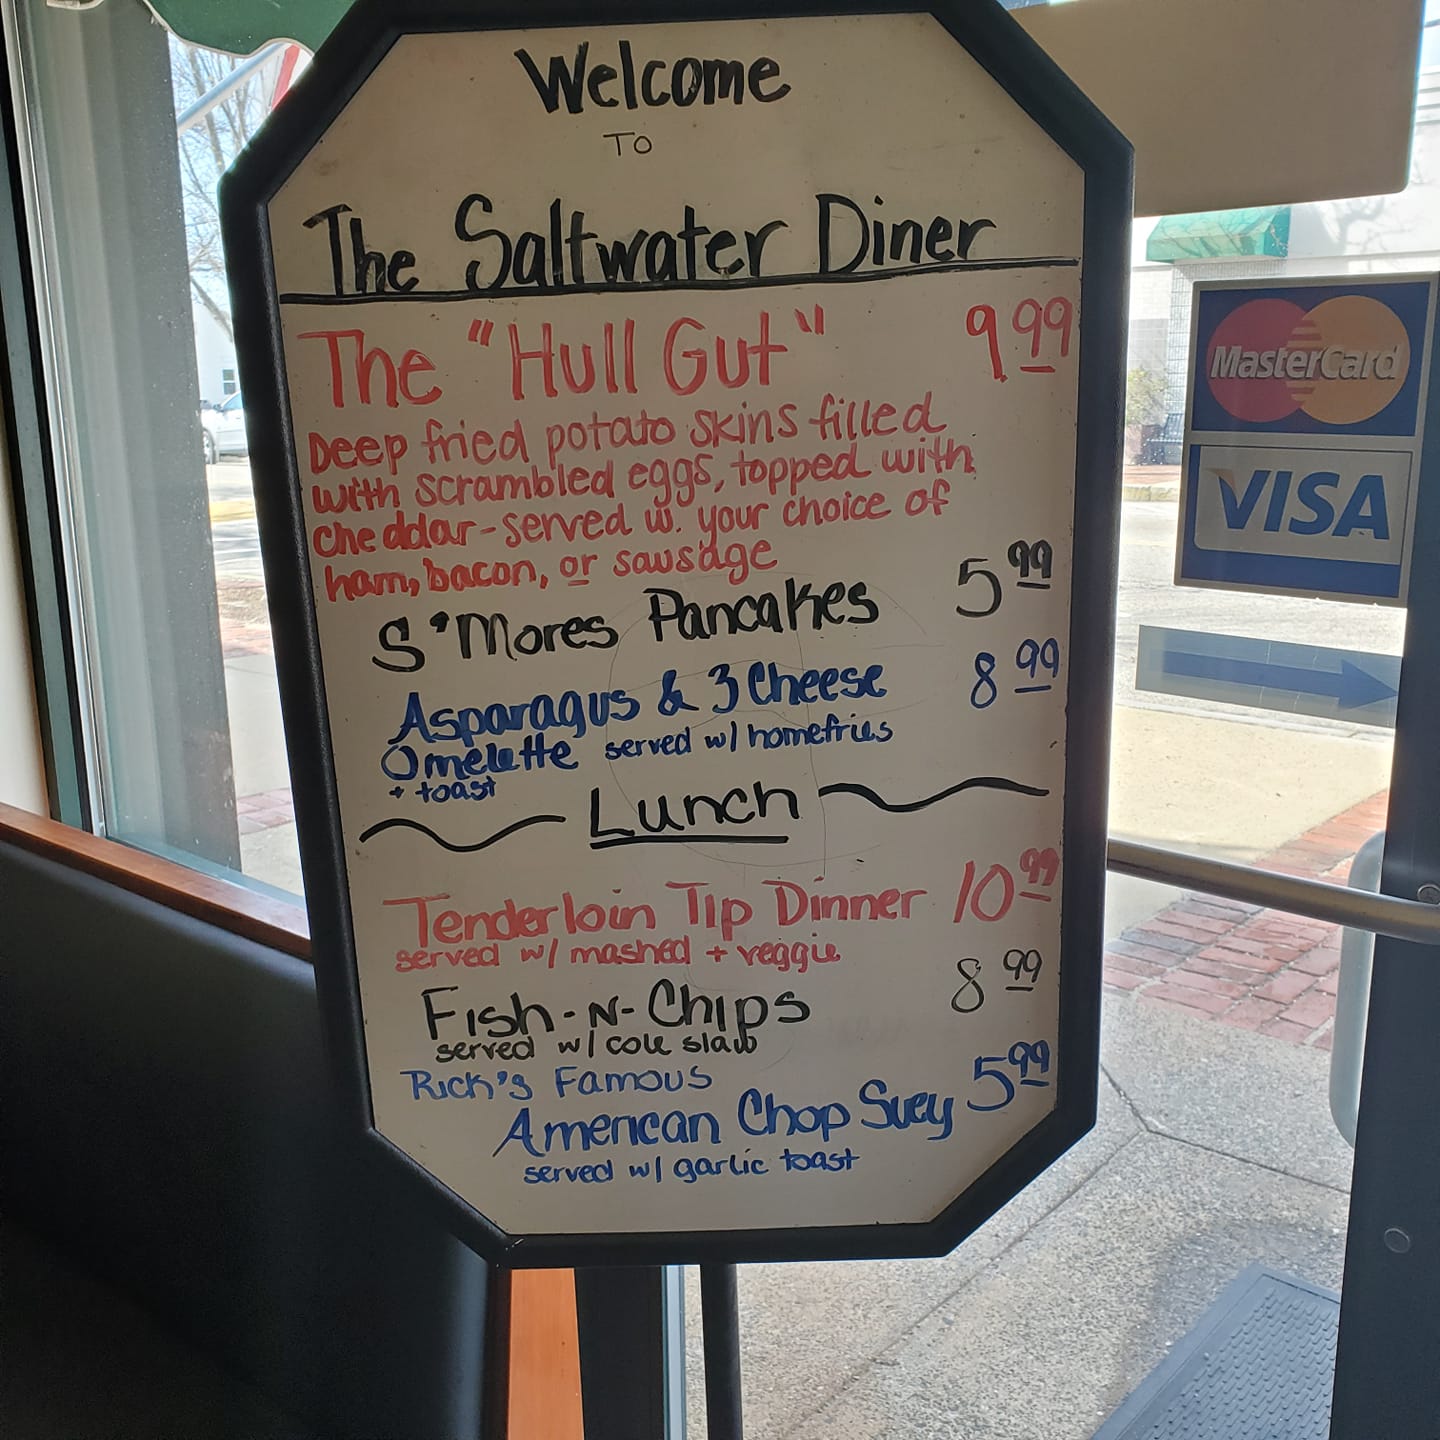 Welcome
TO
The Saltwater Diner
The "Hull Gut" 9.99
Deep fried potato skins filled
with scrambled eggs, topped with
cheddar - served w. your choice of
ham, bacon, or sausage
S'Mores Pancakes 5 99
Asparagus & 3 Cheese 8 99
Omelette served w/ homefries
+ toast
Lunch
Tenderloin Tip Dinner 10 99
served w/ mashed + veggie
Fish-N-Chips 8 99
served w/ cole slaw
Rick's Famous
American Chop Suey 5 99
served w/ garlic toast
MasterCard
VISA